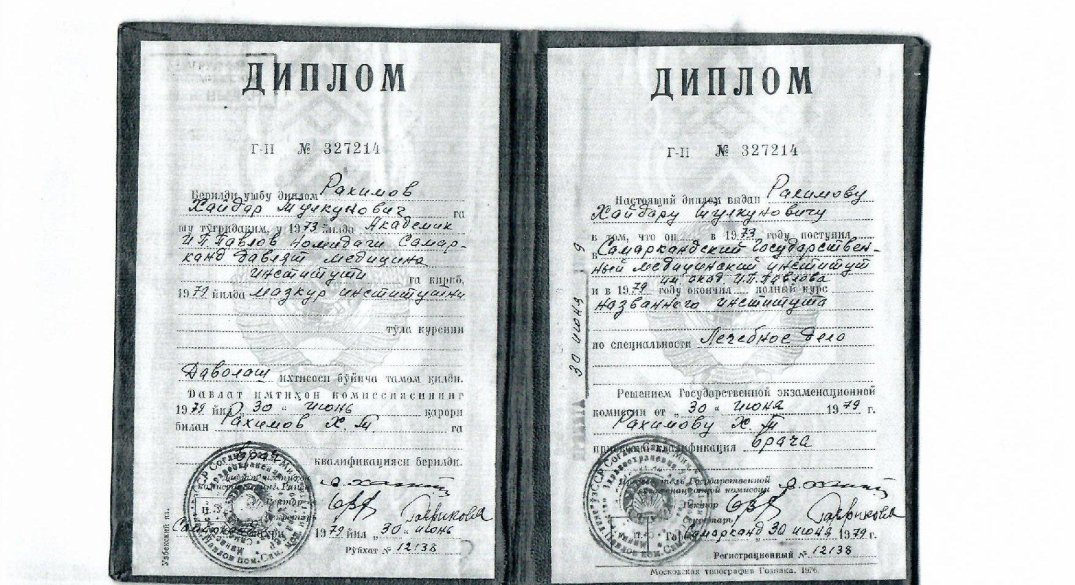 ДИПЛОМ
Г-II № 327214
Берилди ушбу диплом Рахимов
Хайдар Тулкунович га
шу тўғридаким, у 1973 йилда Академик
И.П.Павлов номидаги Самар-
канд Давлат медицина
институти га кириб,
1979 йилда мазкур институтни
тўла курсини
Даволаш ихтисоси бўйича тамом қилди.
Давлат имтиҳон комиссиясининг
1979 йил „30“ июнь қарори
билан Рахимов Х.Т. га
врач
квалификацияси берилди.
Ректор
Секретарь
Самарканд шаҳри 1979 йил „30“ июнь
Рўйхат № 12138
Узбекский яз.
ДИПЛОМ
Г-II № 327214
Настоящий диплом выдан Рахимову
Хайдару Тулкуновичу
в том, что он в 1973 году поступил
в Самаркандский Государствен-
ный медицинский институт
им. акад. И.П.Павлова
и в 1979 году окончил полный курс
названного института
по специальности Лечебное дело
Решением Государственной экзаменационной
комиссии от „30“ июня 1979 г.
Рахимову Х.Т.
присвоена квалификация врача
Председатель Государственной
экзаменационной комиссии
Ректор
Секретарь
Город Самарканд 30 июня 1979 г.
Регистрационный № 12138
Московская типография Гознака. 1976.
30 июня